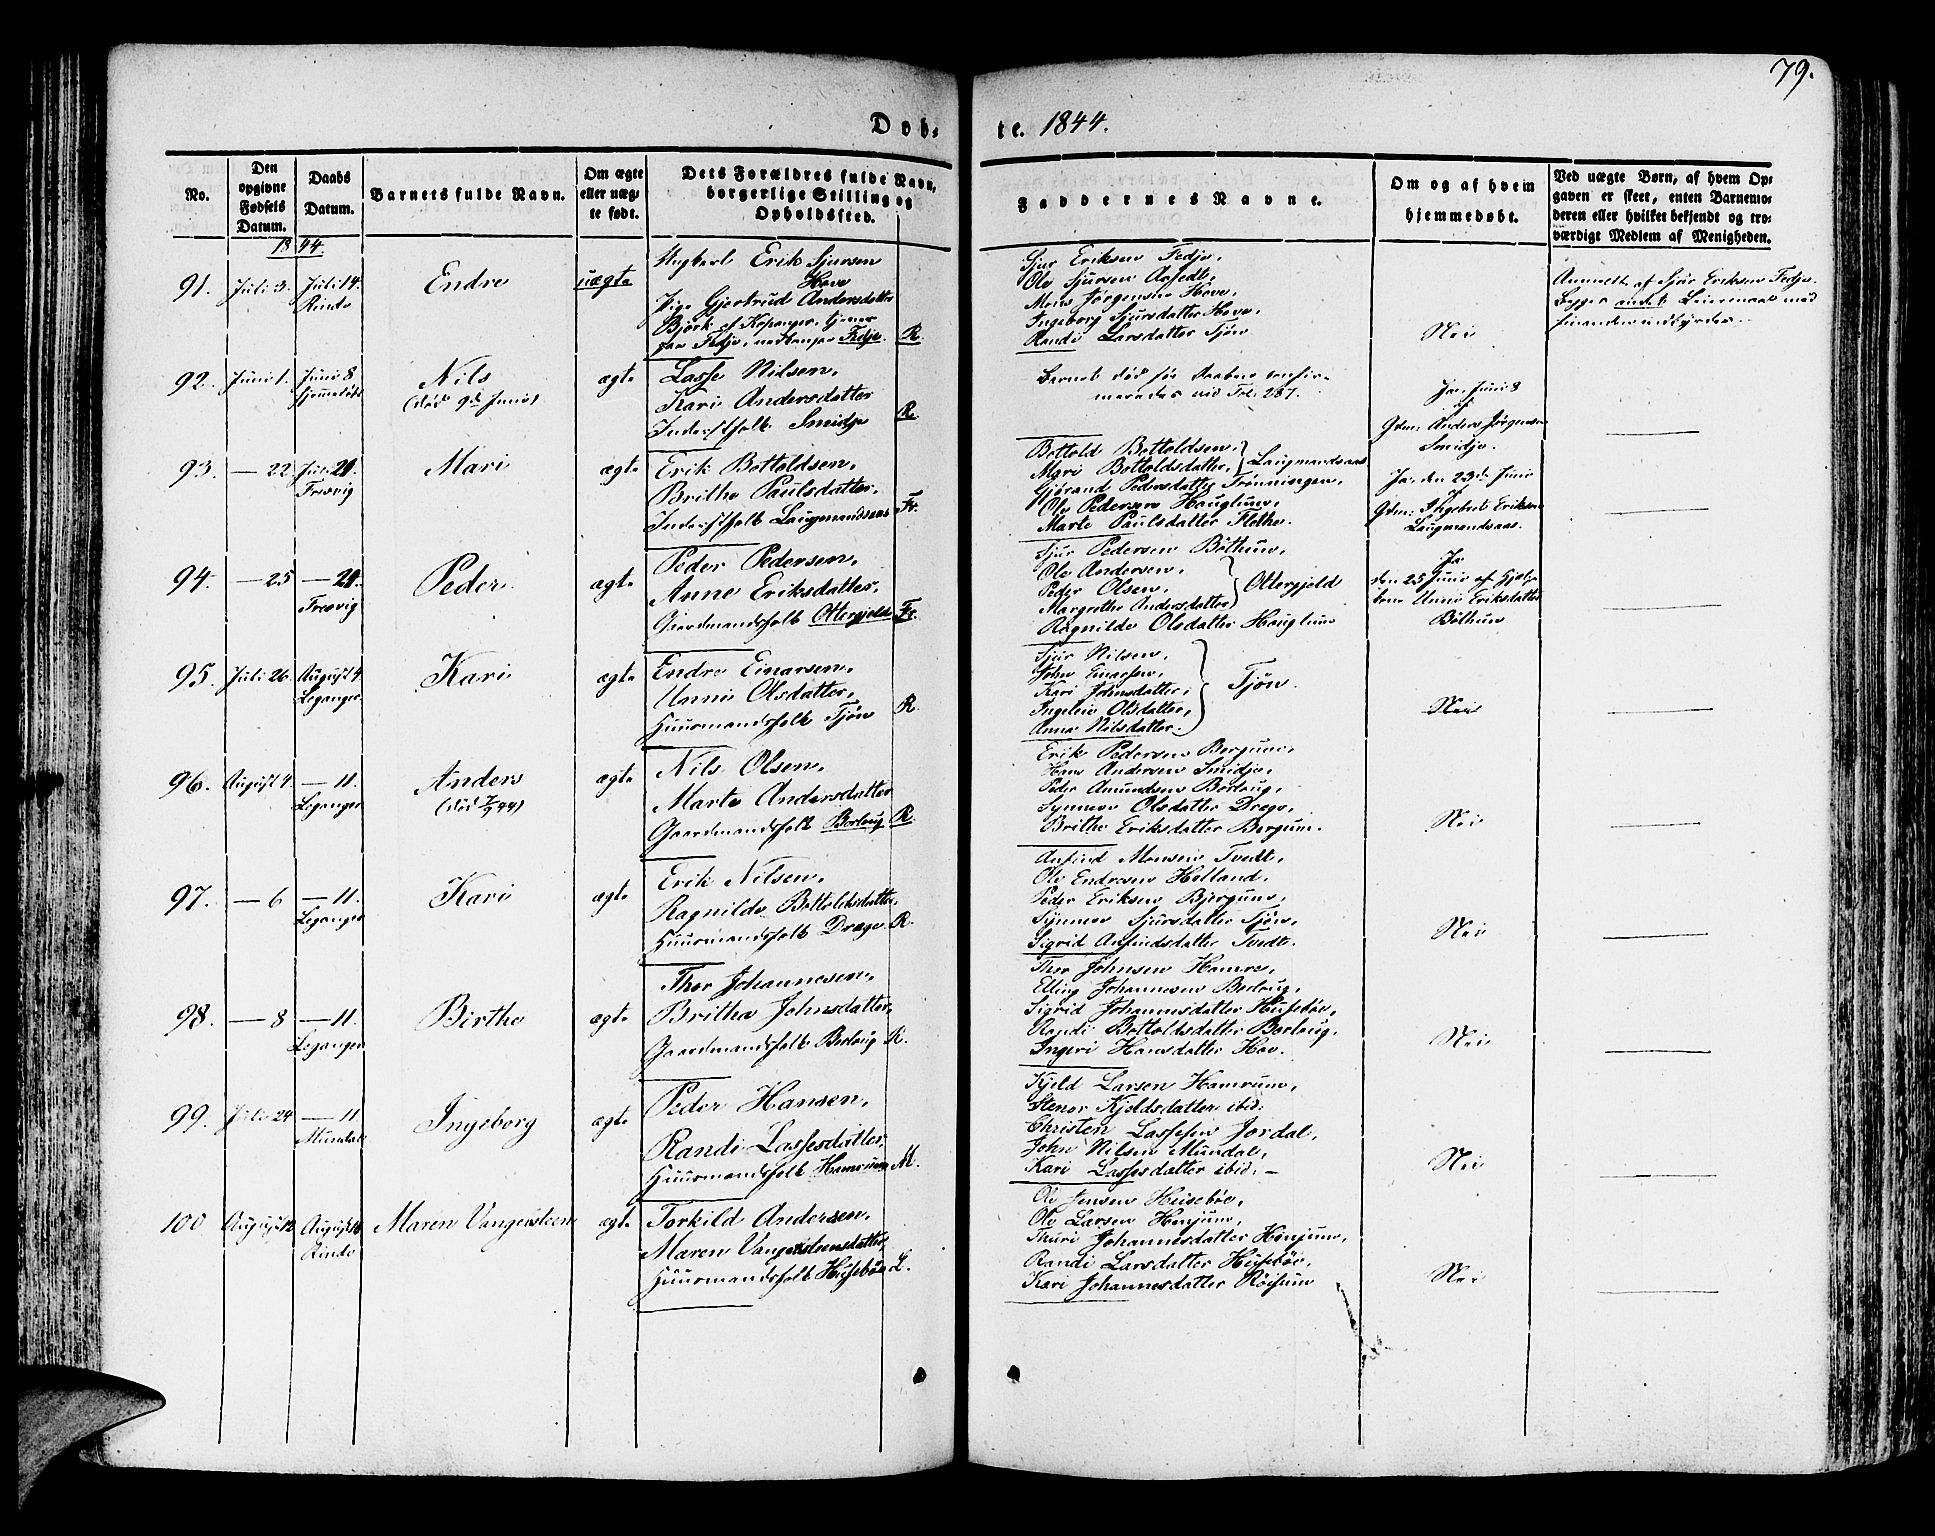 79.
Døb-
te. 1844.
No.
Den opgivne Fødsels Datum.
Daabs Datum.
Barnets fulde Navn.
Om ægte eller uæg-
te født.
Dets Forældres fulde Navn,
borgerlige Stilling og
Opholdssted.
Faddernes Navne.
Om og af hvem
hjemmedøbt.
Ved uægte Børn, af hvem Op-
gaven er skeet, enten Barnemo-
deren eller hvilket bekjendt og tro-
værdigt Medlem af Menigheden.
1844.
91. Juli 3. Juli 14. Rinde
Endre
uægte
Ungkarl Erik Sjursen
Hove
Pige Gjertrud Andersdatter
Björk af Kopanger, tjener
paa Fedje, Fedje. R.
Sjur Eriksen Fedje,
Ole Sjursen
Mons Jørgensen Hove,
Ingeborg Sjursdatter Hove,
Randi Larsdatter Tjøn
Nei
Anmeldt af Sjur Eriksen Fedje.
Begges andet Leiermaal
92. Juni 1. Juni 8 hjemmedøbt
Nils
(død 9de Junii)
ægte
Lasse Nilsen,
Kari Andersdatter
Inderstfolk Smidje R.
Barnet død før Daaben confir-
meredes vid Fol. 287.
Ja, Juni 8
af
Gdm: Anders Jørgensen
Smidje.
93. — 22 Juli 21. Fresvig
Mari
ægte
Erik Bottoldsen,
Brithe Paulsdatter,
Inderstfolk Laugmandsaas Fr.
Bottold Bottoldsen,
Mari Bottoldsdatter, } Laugmandsaas
Gjørand Pedersdatter Trønningen,
Ole Pedersen Hauglum,
Marte Paulsdatter Flethe.
Ja, den 23de Junii
af
Gdm: Ingebret Eriksen
Laugmandsaas.
94. — 25 — 21. Fresvig
Peder.
ægte
Peder Pedersen,
Anne Eriksdatter,
Gaardmandsfolk Ottergjeld Fr.
Sjur Pedersen Böthun,
Ole Andersen,
Peder Olsen,
Margrethe Andersdatter } Ottergjeld
Ragnilde Olsdatter Hauglum
Ja
den 25 Junii af
Unni Eriksdatter
Böthun
95. Juli 26. August 4 Leganger
Kari
ægte
Endre Einarsen,
Unni Olsdatter,
Huusmandsfolk Tjøn R.
Sjur Nilsen,
John Einarsen,
Kari Johnsdatter,
Ingeleiv Olsdatter,
Anna Nilsdatter. } Tjøn.
Nei
96. August 4 — 11. Leganger
Anders
ægte
Nils Olsen,
Marte Andersdatter
Gaardmandsfolk Borlaug R.
Erik Pedersen Bergum,
Hans Andersen Smidje,
Peder Amundsen Borlaug,
Synneve Olsdatter Drage,
Brithe Eriksdatter Bergum.
Nei
97. — 6 — 11. Leganger
Kari
ægte
Erik Nilsen,
Ragnilde Bottoldsdatter,
Huusmandsfolk Drage R.
Anfind Monsen Tvedt,
Ole Endresen Helland,
Peder Eriksen Bjergum,
Synneve Sjursdatter Tjøn,
Sigrid Anfindsdatter Tvedt.
Nei
98. — 8 — 11. Leganger
Birthe
ægte
Thor Johannesen,
Britha Johnsdatter,
Gaardmandsfolk Borlaug R.
Thor Johnsen Hamre,
Elling Johannesen Borlaug,
Sigrid Johannesdatter Husebøe,
Randi Bottoldsdatter Borlaug,
Ingeri Hansdatter Hov.
Nei
99. Juli 24 — 11 Mundal
Ingeborg
ægte
Peder Hansen,
Randi Lassesdatter
Huusmandsfolk Hamrum M.
Kjeld Larsen Hamrum,
Stenor Kjeldsdatter ibid:
Christen Lassesen Jordal,
John Nilsen Mundal,
Kari Lassesdatter ibid. —
Nei
100 August 12 August 18 Rinde
Maren Vangensteen
ægte
Torkild Andersen,
Maren Vangensteensdatter,
Huusmandsfolk Husebøe L.
Ole Jensen Husebøe,
Ole Larsen Henjum,
Thuri Johannesdatter Henjum,
Randi Larsdatter Husebøe,
Kari Johannesdatter Röisum
Nei